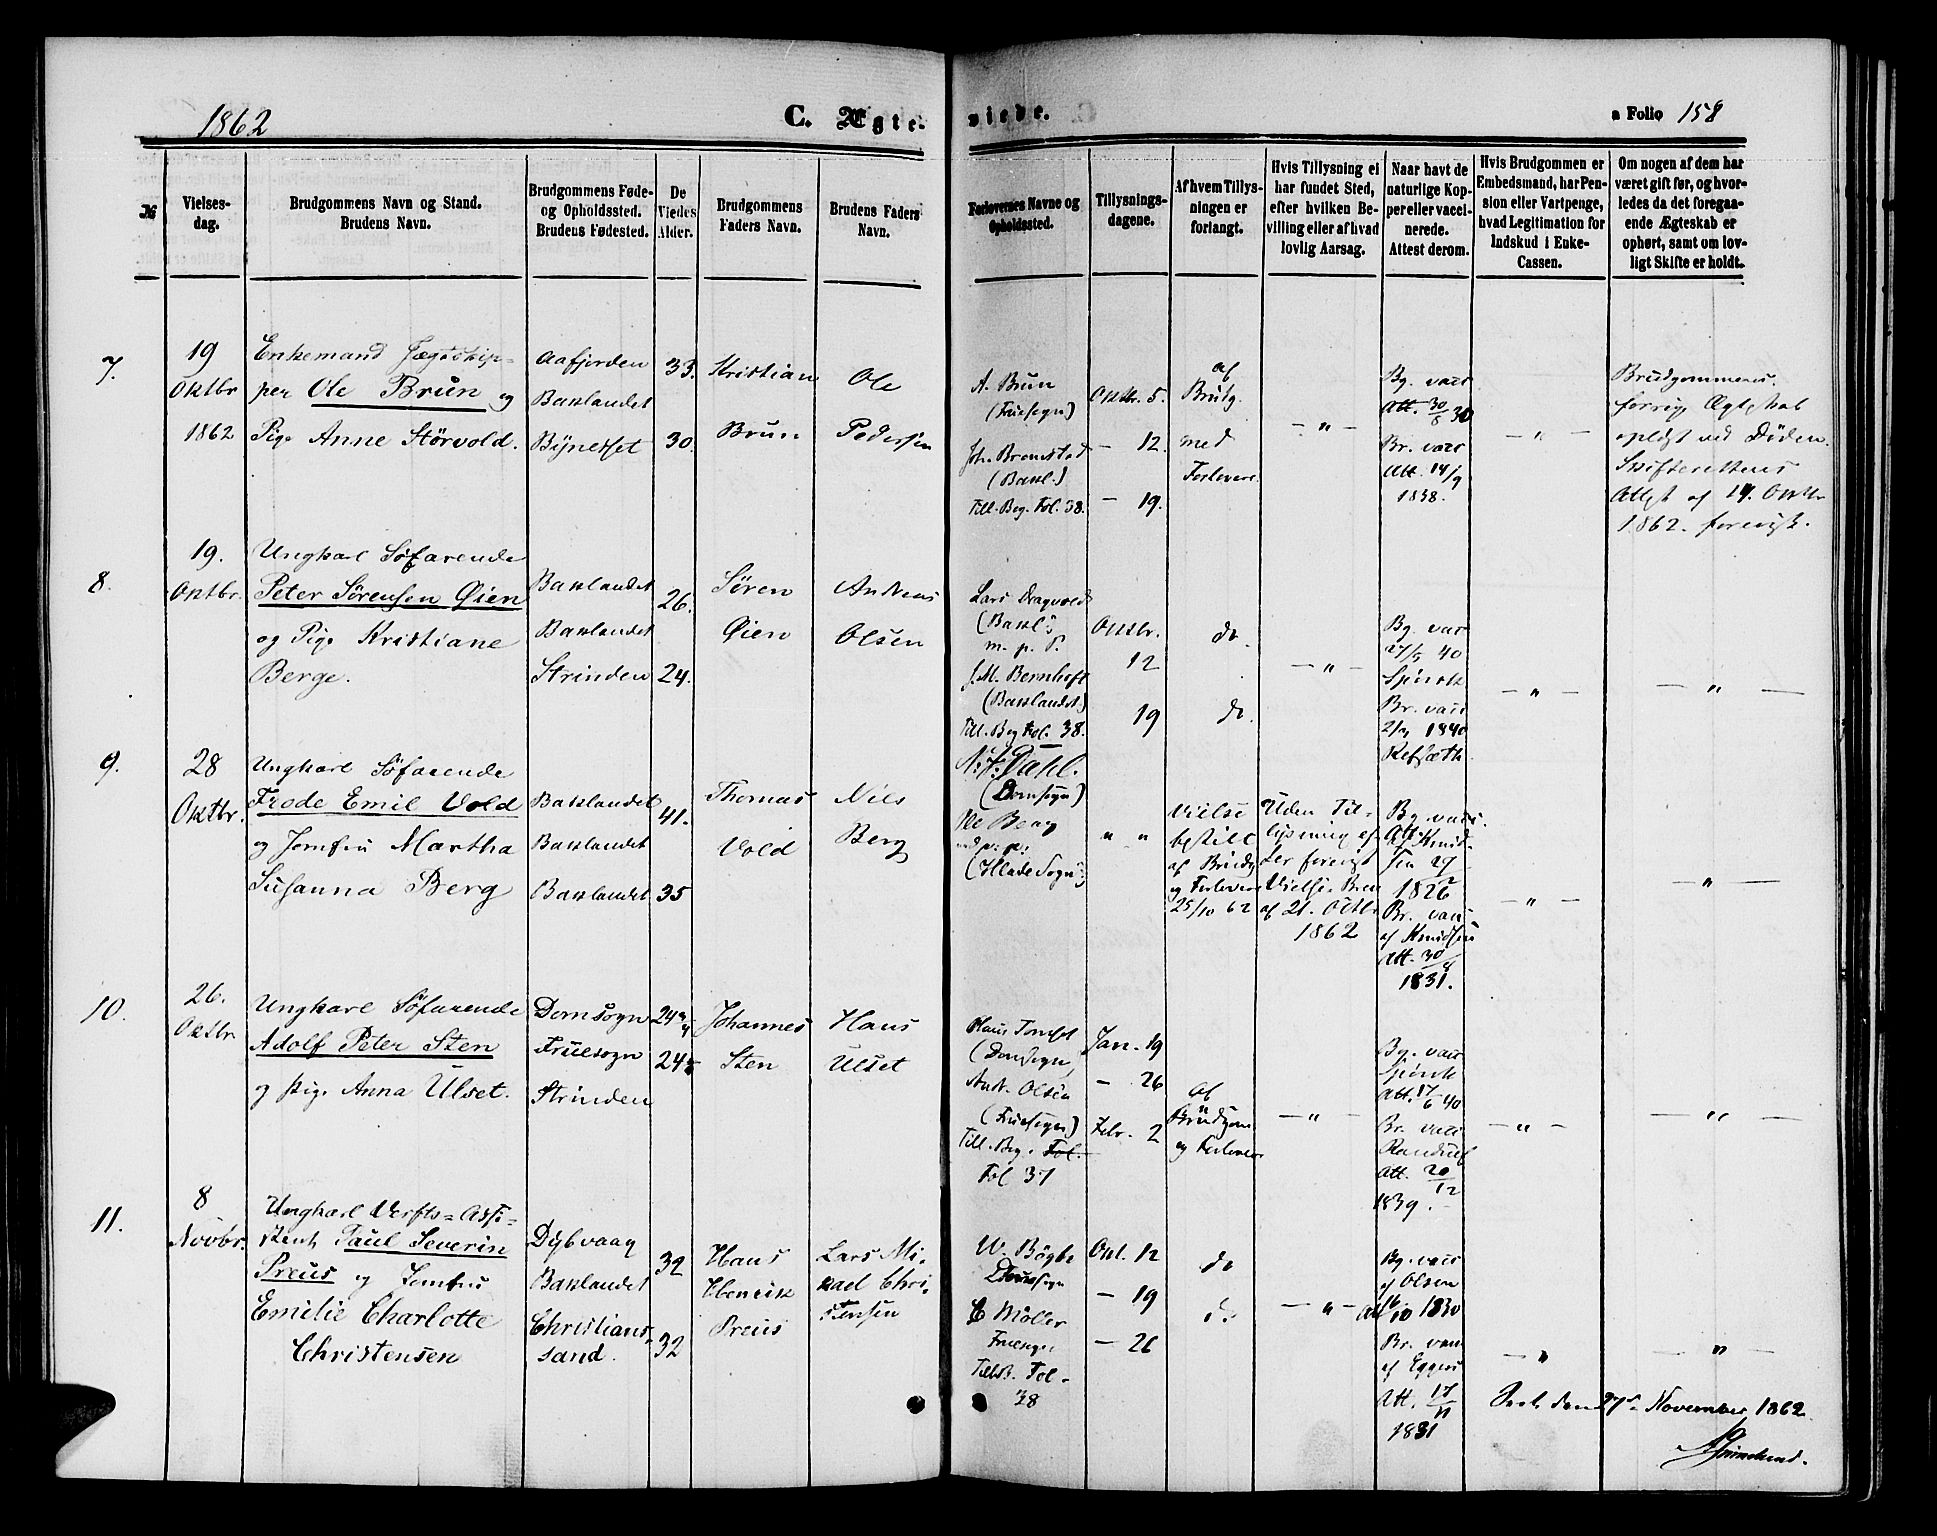 1862
C. Ægte-
viede.
a Folio 158
№
Vielses-
dag.
Brudgommens Navn og Stand.
Brudens Navn.
Brudgommens Føde-
og Opholdssted.
Brudens Fødested.
De
Viedes
Alder.
Brudgommens
Faders Navn.
Brudens Faders
Navn.
Forlovernes Navne og
Opholdssted.
Tillysnings-
dagene.
Af hvem Tillys-
ningen er
forlangt.
Hvis Tillysning ei
har fundet Sted,
efter hvilken Be-
villing eller af hvad
lovlig Aarsag.
Naar havt de
naturlige Kop-
per eller vacci-
nerede.
Attest derom.
Hvis Brudgommen er
Embedsmand, har Pen-
sion eller Vartpenge,
hvad Legitimation for
Indskud i Enke-
Cassen.
Om nogen af dem har
været gift før, og hvor-
ledes da det foregaa-
ende Ægteskab er
ophørt, samt om lov-
ligt Skifte er holdt.
7.
19
Oktbr
1862
Enkemand Jægtskip-
per Ole Brun og
Pige Anne Störvold.
Aafjorden
Baklandet
Bynesset
33.
30.
Kristian
Brun
Ole
Pedersen
A. Brun
(Fruesogn)
Joh. Bromstad
(Bakl.)
Till. Bog. Fol. 38.
Oktbr. 5.
— 12.
— 19.
af
Brudg.
med
Forlovere.
— " —
Bg. vacc
Att. 30/8 30
Br. vacc
Att. 14/9
1838.
— " —
Brudgommens
forrige Ægteskab
opløst ved Døden.
Skifterettens
Attest af 17. Oktbr
1862. forevist.
8.
19.
Oktbr.
Ungkarl Söfarende
Peter Sörensen Øien
og Pige Kristiane
Berge.
Baklandet
Baklandet
Strinden
26.
24.
Søren
Øien
Andreas
Olsen
Lars Dragvold
(Bakl.)
m. p. P.
J. M. Bernhoft
(Baklandet)
Till. Bog Fol. 38.
Oktbr.
12
19
do.
do.
— " —
Bg. vac
27/5 40
Br. vacc
1840
— " —
— " —
9.
28
Oktbr.
Ungkarl Söfarende
Frode Emil Vold
og Jomfru Martha
Susanna Berg
Baklandet
Baklandet
Baklandet
41.
35
Thomas
Vold
Nils
Berg
Dahl.
(Domsogn)
Ole Berg
(Ihlade Sogn)
" "
Vielse
bestilt
af Brudg
og Forlovere
25/10 62
Uden Til-
lysning ef-
ter forevist
Vielse Brev
af 21. Octbr
1862
Bg. vacc.
Att. Knud-
sen 27
1826
Br. vacc
af Knudsen
Att. 30
1831.
— " —
— " —
10.
26.
Oktbr
Ungkarl Söfarende
Adolf Peter Sten
og pige Anna Ulset.
Domsogn
Fruesogn
Strinden
24
24
Johannes
Sten
Hans
Ulset
(Domsogn)
Andr. Olsen
(Fruesogn)
Till. Bog. Fol.
Fol 37
Jan. 19
— 26
Febr. 2
Af
Brudgom
og Forlovere
— " —
Bg. vacc
Att. 17/6 40
Br. vacc
Att. 20/12
1839.
— " —
— " —
11.
8
Novbr.
Ungkarl Verfts-Assi-
stent Paul Severin
Preus og Jomfru
Emilie Charlotte
Christensen
Dybvaag
Baklandet
Christians-
sand.
32
32
Hans
Henrik
Preus
Lars Mi-
kael Chri-
stensen
Domsogn
C Möller
Fruesogn
Fol.
38
Okt. 12
— 19
— 26
do
do
— " —
Bg. vacc
af Olsen
Att 16/10 1830
Br. vacc
af Eggers
Att. 17/11
1831
— " —
— " —
November 1862.